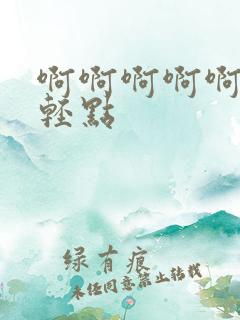 啊啊啊啊啊
輕點
绿有痕
未经同意禁止转载